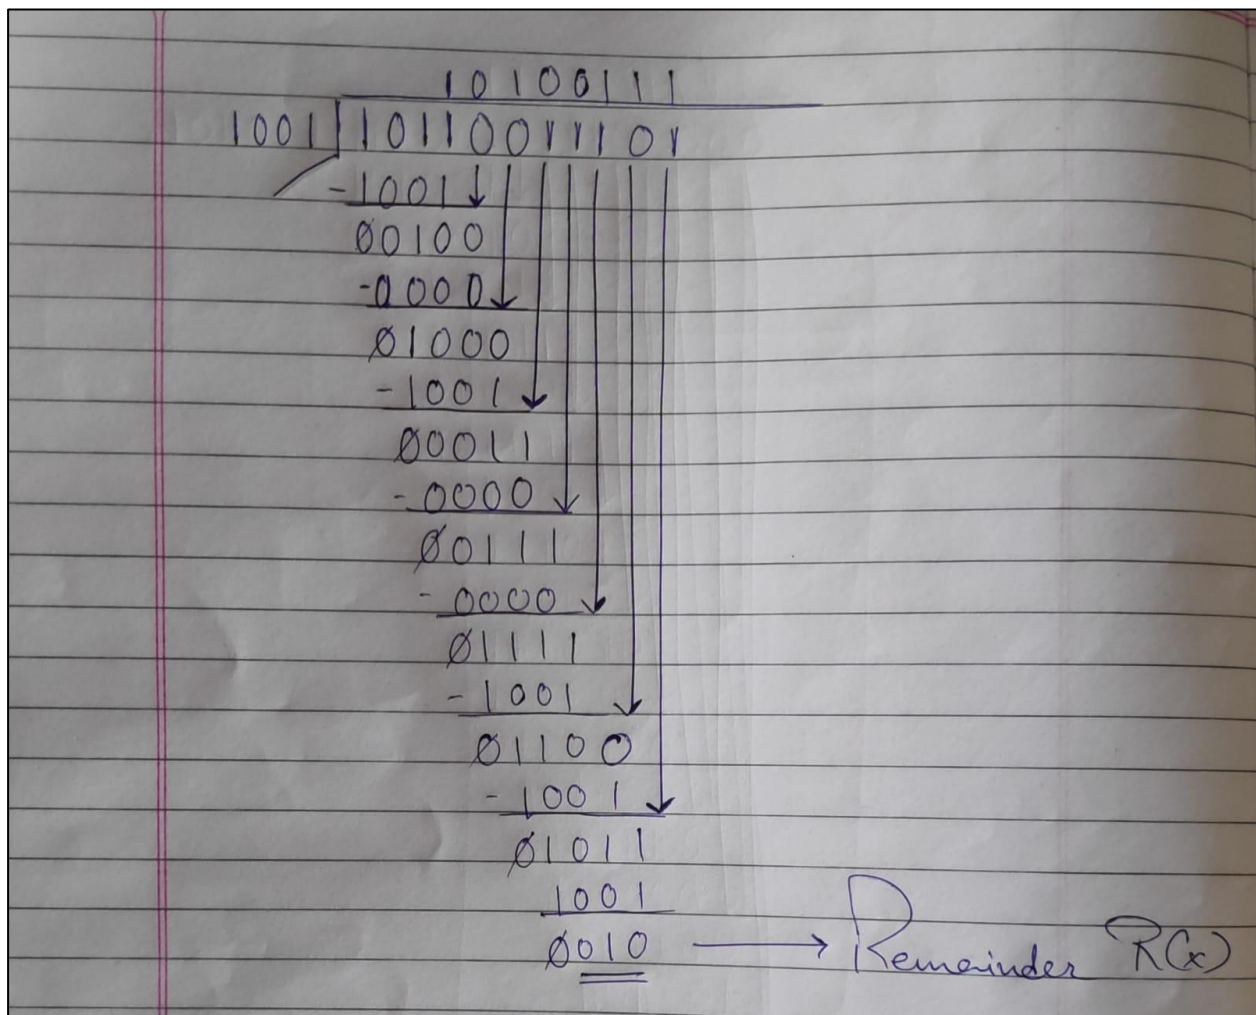 10100111
1001 10110011101
-1001
00100
-0000
01000
-1001
00011
-0000
00111
-0000
01111
-1001
01100
-1001
01011
1001
0010 → Remainder R(x)